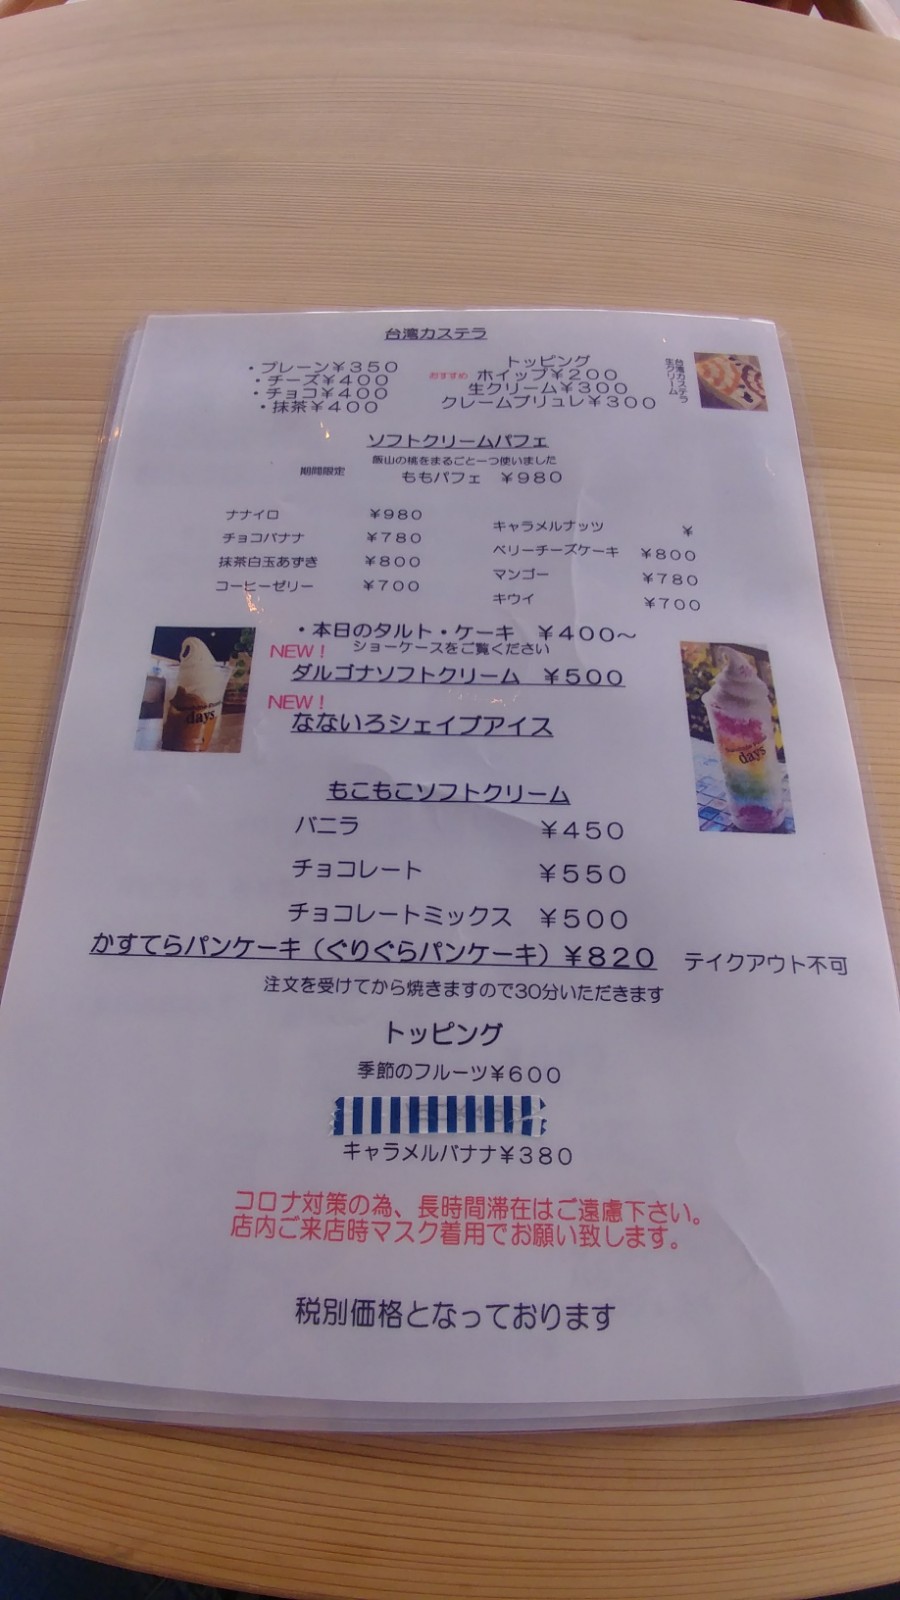 台湾カステラ
・プレーン¥350
・チーズ¥400
・チョコ¥400
・抹茶¥400
トッピング
おすすめ ホイップ¥200
生クリーム¥300
クレームブリュレ¥300
台湾カステラ
生クリーム
ソフトクリームパフェ
飯山の桃をまるごと一つ使いました
期間限定 ももパフェ ¥980
ナナイロ ¥980
チョコバナナ ¥780
抹茶白玉あずき ¥800
コーヒーゼリー ¥700
キャラメルナッツ ¥
ベリーチーズケーキ ¥800
マンゴー ¥780
キウイ ¥700
・本日のタルト・ケーキ ¥400～
ショーケースをご覧ください
NEW！
ダルゴナソフトクリーム ¥500
NEW！
なないろシェイブアイス
days
days
もこもこソフトクリーム
バニラ ¥450
チョコレート ¥550
チョコレートミックス ¥500
かすてらパンケーキ（ぐりぐらパンケーキ）¥820 テイクアウト不可
注文を受けてから焼きますので30分いただきます
トッピング
季節のフルーツ¥600
キャラメルバナナ¥380
コロナ対策の為、長時間滞在はご遠慮下さい。
店内ご来店時マスク着用でお願い致します。
税別価格となっております